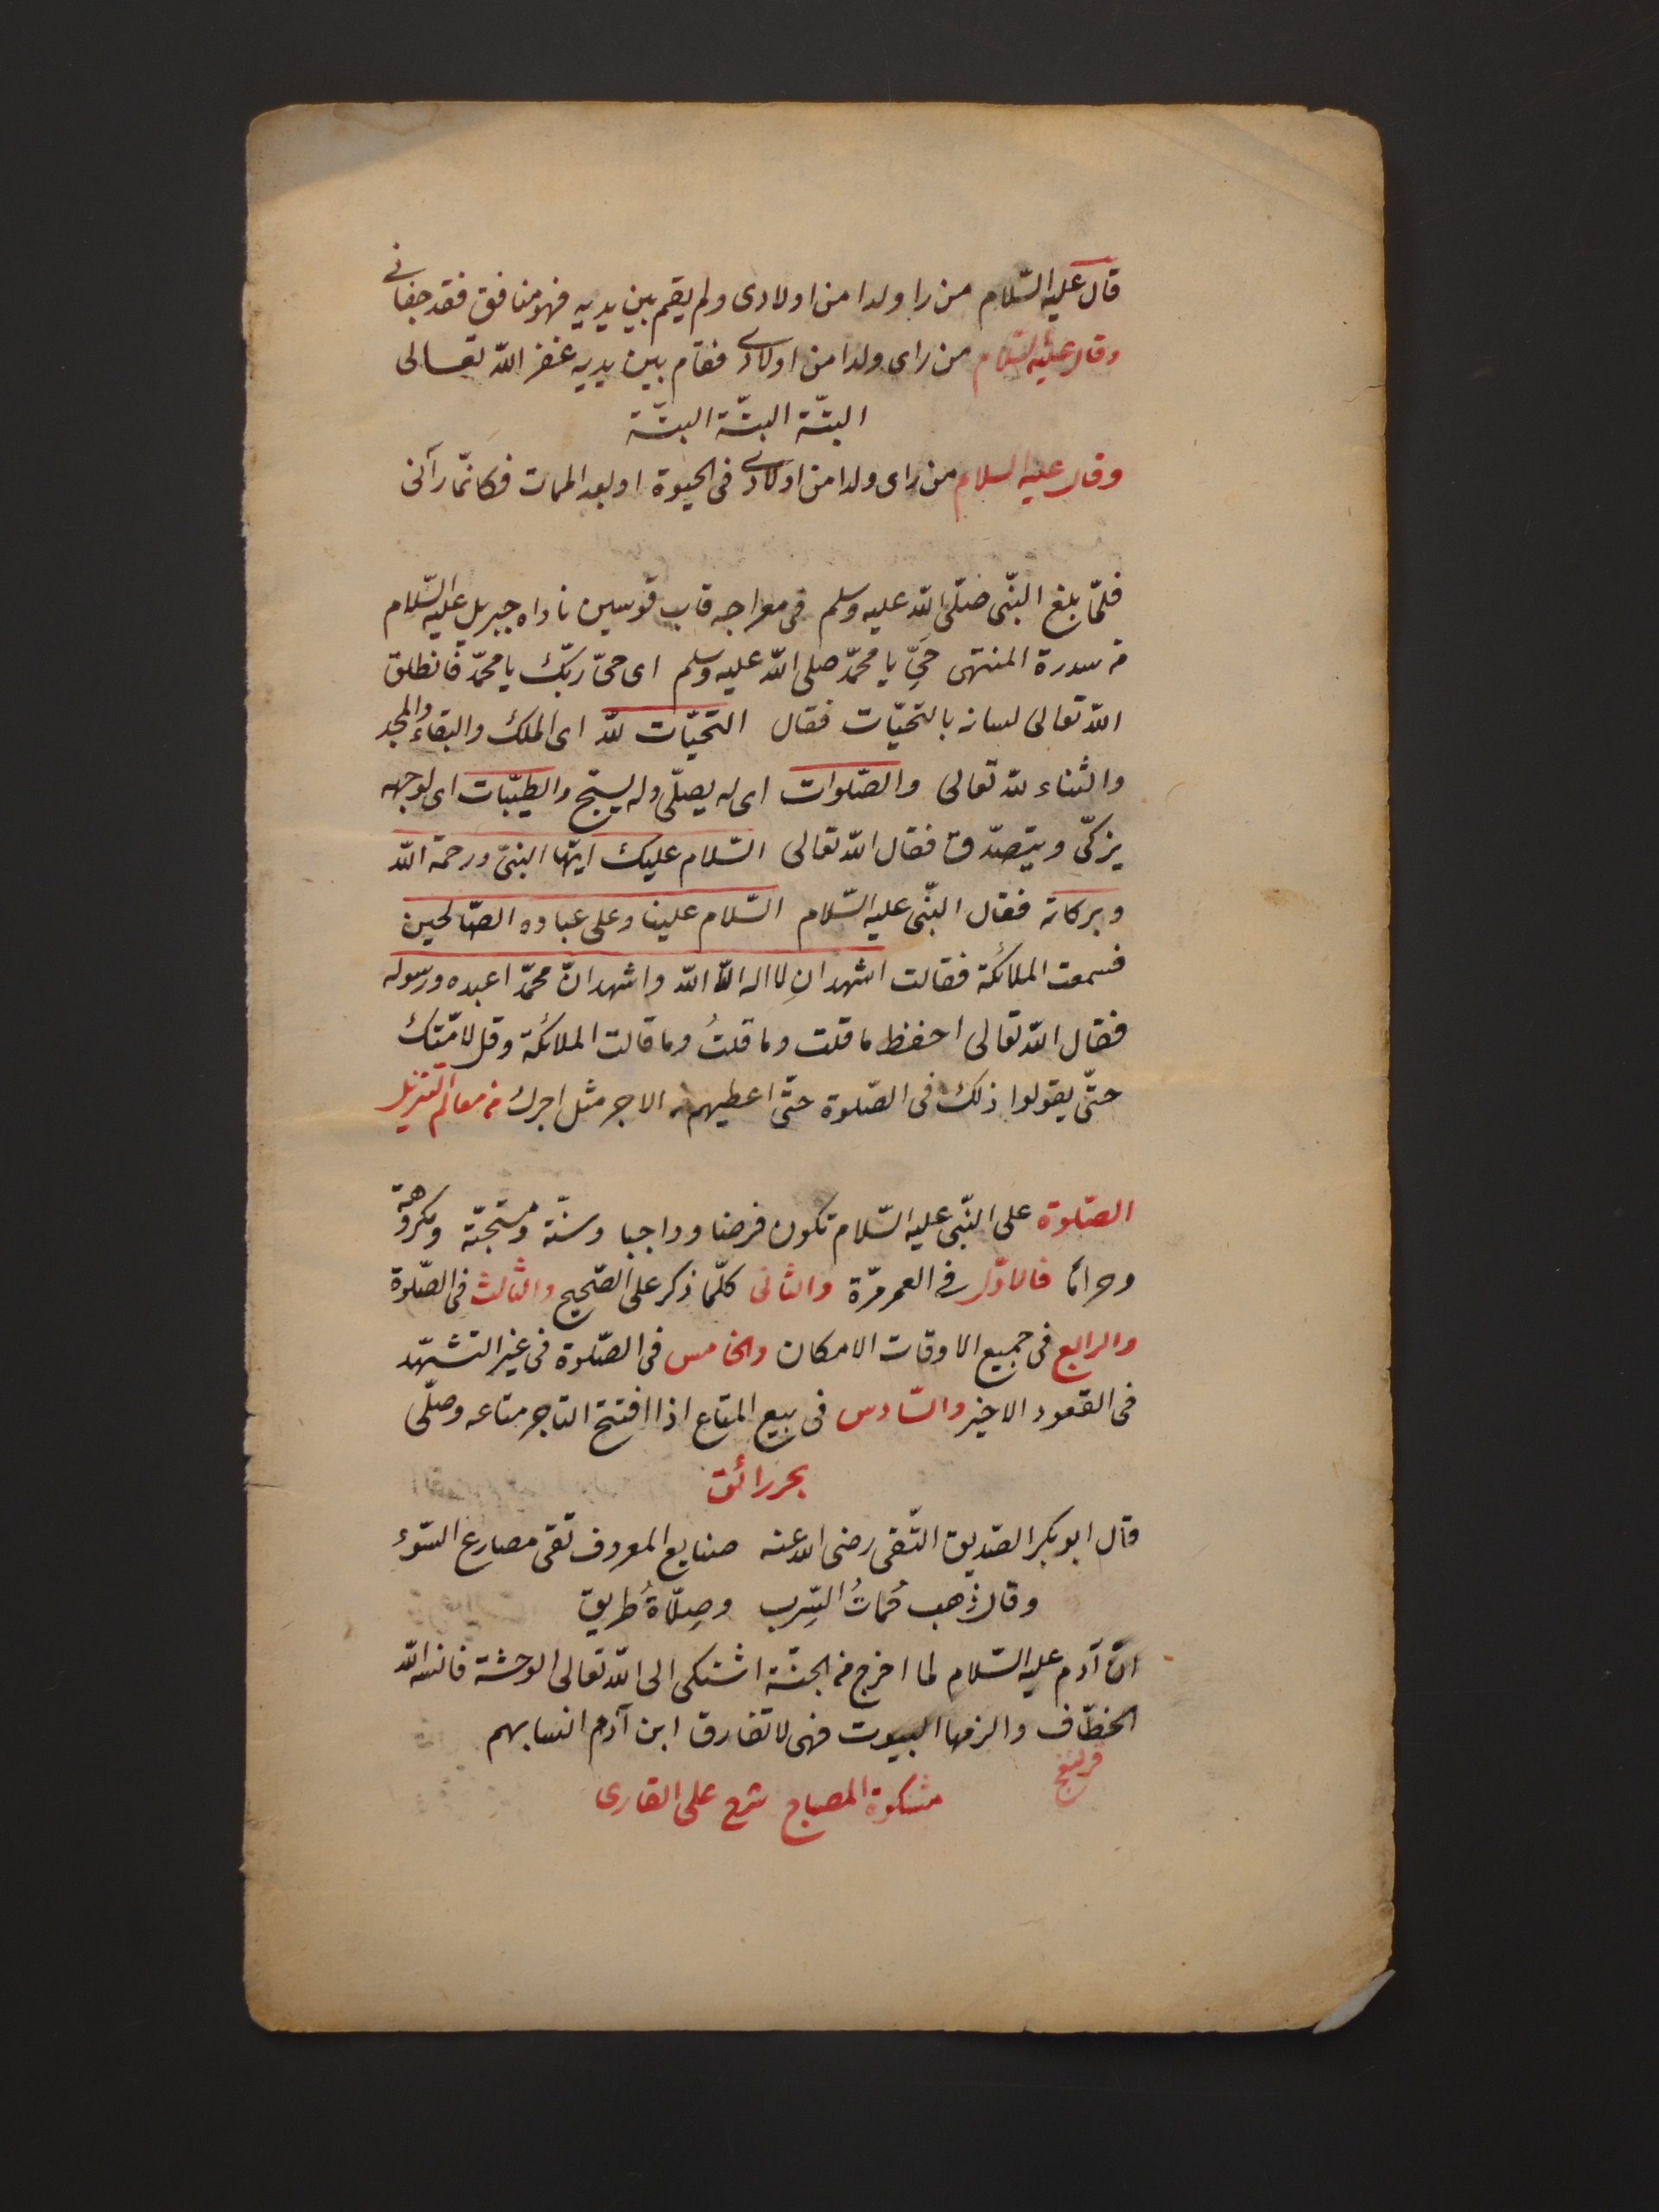 قال عليه السّلام من را ولدا من اولادى ولم يقم بين يديه فهو منافق فقد جفانى
وقال عليه السّلام من راى ولدا من اولادى فقام بين يديه غفر اللّه تعالى
البتّة البتّة البتّة
وقال عليه السلام من راى ولدا من اولادى فى الحيوة او بعد الممات فكانّما رآنى
فلمّا بلغ النبّى صلّى اللّه عليه وسلم فى معراجه قاب قوسين ناداه جبريل عليه السّلام
من سدرة المنتهى حَىِّ يا محمّد صلى اللّه عليه وسلم اى حىّ ربّك يا محمّد فانطلق
اللّه تعالى لسانه بالتحيّات فقال التحيّات للّه اى الملك والبقاء والمجد
والثناء للّه تعالى والصّلوات اى له يصلّى وله يسبّح والطيّبات اى لوجهه
يزكّى ويتصدّق فقال اللّه تعالى السّلام عليك ايّها النبىّ ورحمة اللّه
وبركاته فقال النبّى عليه السّلام السّلام علينا وعلى عباده الصّالحين
فسمعت الملائكة فقالت اشهد انِ لا اله الّا اللّه واشهد انّ محمّد اعبده ورسوله
فقال اللّه تعالى احفظ ما قلت وما قلتُ وما قالت الملائكة وقل لامّتك
حتّى يقولوا ذلك فى الصّلوة حتّى اعطيهم من الاجر مثل اجرك من معالم التنزيل
الصّلوة على النبّى عليه السّلام تكون فرضا وواجبا وسنّة ومستحبّة ومكروهة
وحراما فالاوّل فى العمر مرّة والثانى كلّما ذكر على الصّحيح والثالث فى الصّلوة
والرابع فى جميع الاوقات الامكان والخامس فى الصّلوة فى غير التشهّد
فى القعود الاخير والسّادس فى بيع المتاع اذا افتتح التاجر متاعه وصلّى
بحر رائق
قال ابو بكر الصّديق التّقى رضى اللّه عنه صنايع المعروف تقى مصارع السّوء
وقال ذهب حُماتُ السِّرب وصِلّاةُ طريق
انّ آدم عليه السّلام لما اخرج من الجنّة اشتكى الى اللّه تعالى الوحشة فانسه اللّه
الخطّاف والزمها البيوت فهى لا تفارق ابن آدم انسا بهم
مشكوة المصباح شرح على القارى